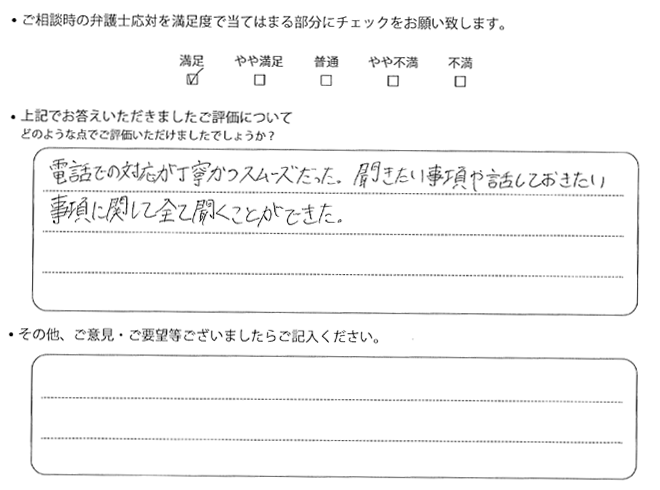 ・ご相談時の弁護士応対を満足度で当てはまる部分にチェックをお願い致します。
満足 やや満足 普通 やや不満 不満
☑ □ □ □ □
・上記でお答えいただきましたご評価について
どのような点でご評価いただけましたでしょうか？
電話での対応が丁寧かつスムーズだった。聞きたい事項や話しておきたい
事項に関して全て聞くことができた。
・その他、ご意見・ご要望等ございましたらご記入ください。